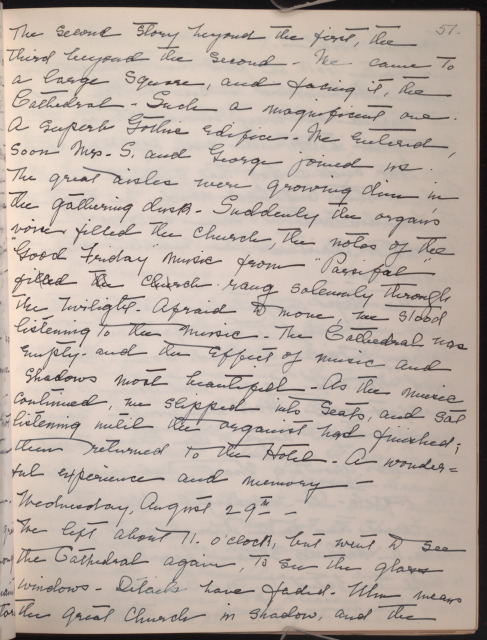 51.
The second story beyond the first, the
third beyond the second - We came to
a large square, and facing it, the
Cathedral - Such a magnificent one.
A superb Gothic edifice - We entered,
soon Mrs. S. and George joined us.
The great aisles were growing dim in
the gathering dusk - Suddenly the organs
voice filled the church, the notes of the
"Good Friday" music from "Parsifal"
filled the church rang solemnly through
the twilight - Afraid to move, we stood
listening to the music - The Cathedral was
empty - and the effect of music and
shadows most beautiful - As the music
continued, we slipped into seats, and sat
listening until the organist had finished;
then returned to the Hotel - A wonder=
ful experience and memory -
Wednesday, August 29th -
We left about 11. o'clock, but went to see
the Cathedral again, to see the glass
windows - Details have faded. Mem means
the great church in shadow, and the